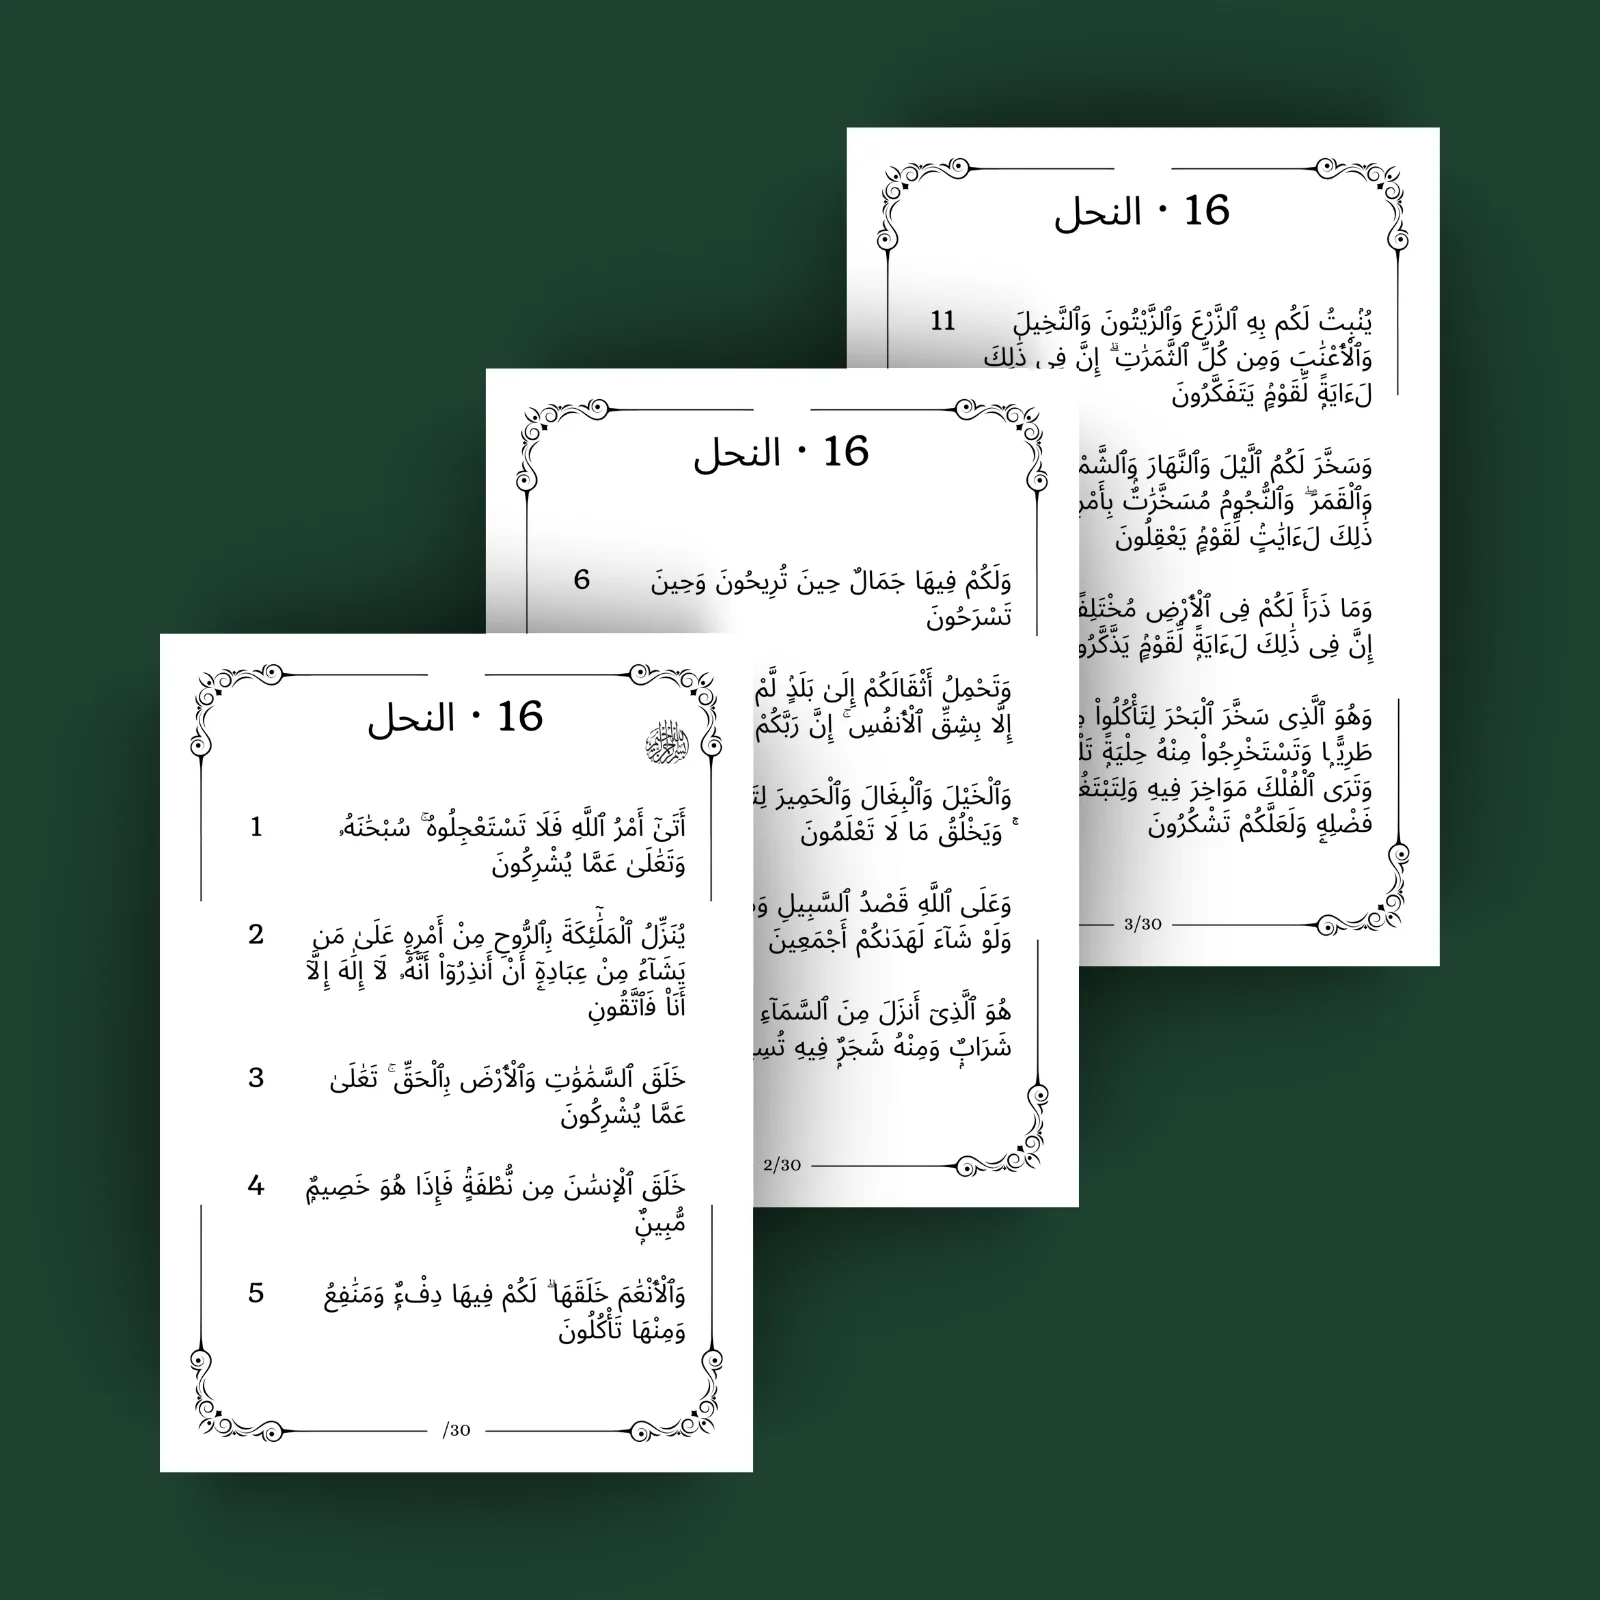 16 · النحل
1 أَتَىٰٓ أَمْرُ ٱللَّهِ فَلَا تَسْتَعْجِلُوهُ ۚ سُبْحَٰنَهُۥ
وَتَعَٰلَىٰ عَمَّا يُشْرِكُونَ
2 يُنَزِّلُ ٱلْمَلَٰٓئِكَةَ بِٱلرُّوحِ مِنْ أَمْرِهِۦ عَلَىٰ مَن
يَشَآءُ مِنْ عِبَادِهِۦٓ أَنْ أَنذِرُوٓا۟ أَنَّهُۥ لَآ إِلَٰهَ إِلَّآ
أَنَا۠ فَٱتَّقُونِ
3 خَلَقَ ٱلسَّمَٰوَٰتِ وَٱلْأَرْضَ بِٱلْحَقِّ ۚ تَعَٰلَىٰ
عَمَّا يُشْرِكُونَ
4 خَلَقَ ٱلْإِنسَٰنَ مِن نُّطْفَةٍۢ فَإِذَا هُوَ خَصِيمٌۭ
مُّبِينٌۭ
5 وَٱلْأَنْعَٰمَ خَلَقَهَا ۗ لَكُمْ فِيهَا دِفْءٌۭ وَمَنَٰفِعُ
وَمِنْهَا تَأْكُلُونَ
/30
16 · النحل
6 وَلَكُمْ فِيهَا جَمَالٌ حِينَ تُرِيحُونَ وَحِينَ
تَسْرَحُونَ
وَتَحْمِلُ أَثْقَالَكُمْ إِلَىٰ بَلَدٍۢ لَّمْ
إِلَّا بِشِقِّ ٱلْأَنفُسِ ۚ إِنَّ رَبَّكُمْ
وَٱلْخَيْلَ وَٱلْبِغَالَ وَٱلْحَمِيرَ
ۚ وَيَخْلُقُ مَا لَا تَعْلَمُونَ
وَعَلَى ٱللَّهِ قَصْدُ ٱلسَّبِيلِ
وَلَوْ شَآءَ لَهَدَىٰكُمْ أَجْمَعِينَ
هُوَ ٱلَّذِىٓ أَنزَلَ مِنَ ٱلسَّمَآءِ
شَرَابٌۭ وَمِنْهُ شَجَرٌۭ فِيهِ
2/30
16 · النحل
11 يُنۢبِتُ لَكُم بِهِ ٱلزَّرْعَ وَٱلزَّيْتُونَ وَٱلنَّخِيلَ
وَٱلْأَعْنَٰبَ وَمِن كُلِّ ٱلثَّمَرَٰتِ ۗ إِنَّ فِى ذَٰلِكَ
لَءَايَةًۭ لِّقَوْمٍۢ يَتَفَكَّرُونَ
وَسَخَّرَ لَكُمُ ٱلَّيْلَ وَٱلنَّهَارَ
وَٱلْقَمَرَ ۖ وَٱلنُّجُومُ مُسَخَّرَٰتٌۢ
ذَٰلِكَ لَءَايَٰتٍۢ لِّقَوْمٍۢ يَعْقِلُونَ
وَمَا ذَرَأَ لَكُمْ فِى ٱلْأَرْضِ
إِنَّ فِى ذَٰلِكَ لَءَايَةًۭ لِّقَوْمٍۢ
وَهُوَ ٱلَّذِى سَخَّرَ ٱلْبَحْرَ لِتَأْكُلُوا۟
طَرِيًّۭا وَتَسْتَخْرِجُوا۟ مِنْهُ حِلْيَةًۭ
وَتَرَى ٱلْفُلْكَ مَوَاخِرَ فِيهِ
فَضْلِهِۦ وَلَعَلَّكُمْ تَشْكُرُونَ
3/30